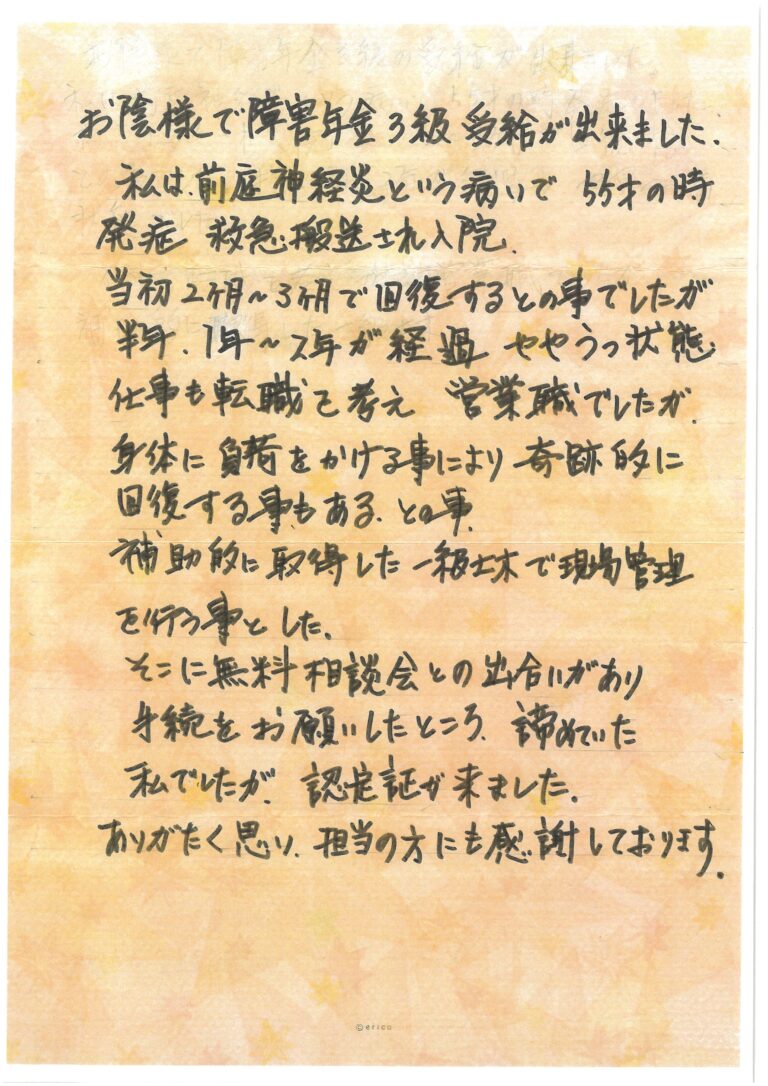 お陰様で障害年金3級 受給が出来ました.
私は.前庭神経炎という病いで 55才の時
発症 救急搬送され入院.
当初2ヶ月~3ヶ月で回復するとの事でしたが
半年.1年~2年が経過 ややうつ状態
仕事も転職を考え 営業職でしたが.
身体に負荷をかける事により奇跡的に
回復する事もある.との事.
補助的に取得した一級土木で現場管理
を行う事とした.
そこに無料相談会との出合いがあり
手続をお願いしたところ.諦めていた
私でしたが.認定証が来ました.
ありがたく思い.担当の方にも感謝しております.
©erico